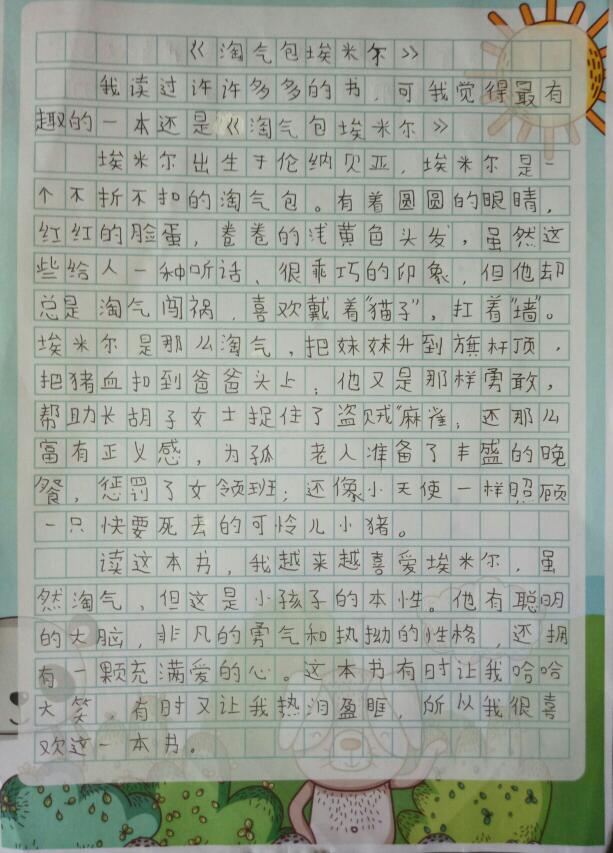 《淘气包埃米尔》
我读过许许多多的书，可我觉得最有
趣的一本还是《淘气包埃米尔》
埃米尔出生于伦纳贝亚，埃米尔是一
个不折不扣的淘气包。有着圆圆的眼睛，
红红的脸蛋，卷卷的浅黄色头发，虽然这
些给人一种听话、很乖巧的印象，但他却
总是淘气闯祸，喜欢戴着“猫子”，扛着“墙”。
埃米尔是那么淘气，把妹妹升到旗杆顶，
把猪血扣到爸爸头上；他又是那样勇敢，
帮助长胡子女士捉住了盗贼“麻雀；还那么
富有正义感，为孤 老人准备了丰盛的晚
餐，惩罚了女领班；还像小天使一样照顾
一只快要死去的可怜儿小猪。
读这本书，我越来越喜爱埃米尔，虽
然淘气，但这是小孩子的本性。他有聪明
的大脑，非凡的勇气和执拗的性格，还拥
有一颗充满爱的心。这本书有时让我哈哈
大笑，有时又让我热泪盈眶，所以我很喜
欢这一本书。